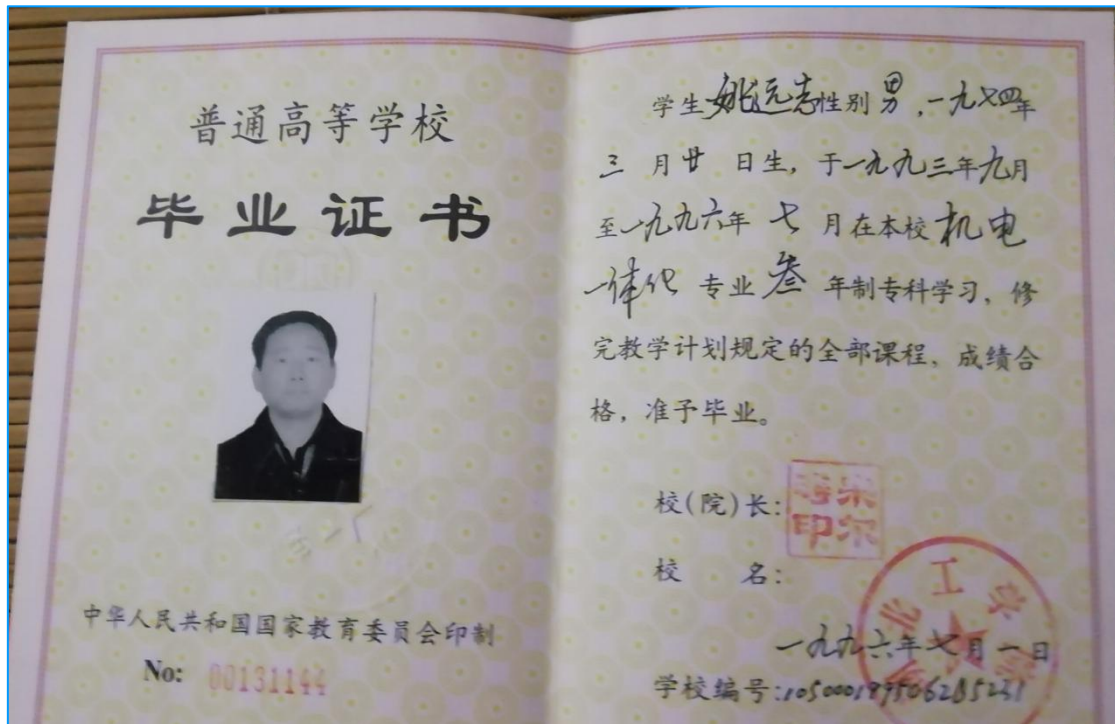 普通高等学校
毕业证书
中华人民共和国国家教育委员会印制
No: 00131144
学生姚远志性别男,一九七四年
三月廿日生,于一九九三年九月
至一九九六年七月在本校机电
一体化专业叁年制专科学习,修
完教学计划规定的全部课程,成绩合
格,准予毕业。
校(院)长:
校名:
北工学
一九九六年七月一日
学校编号: